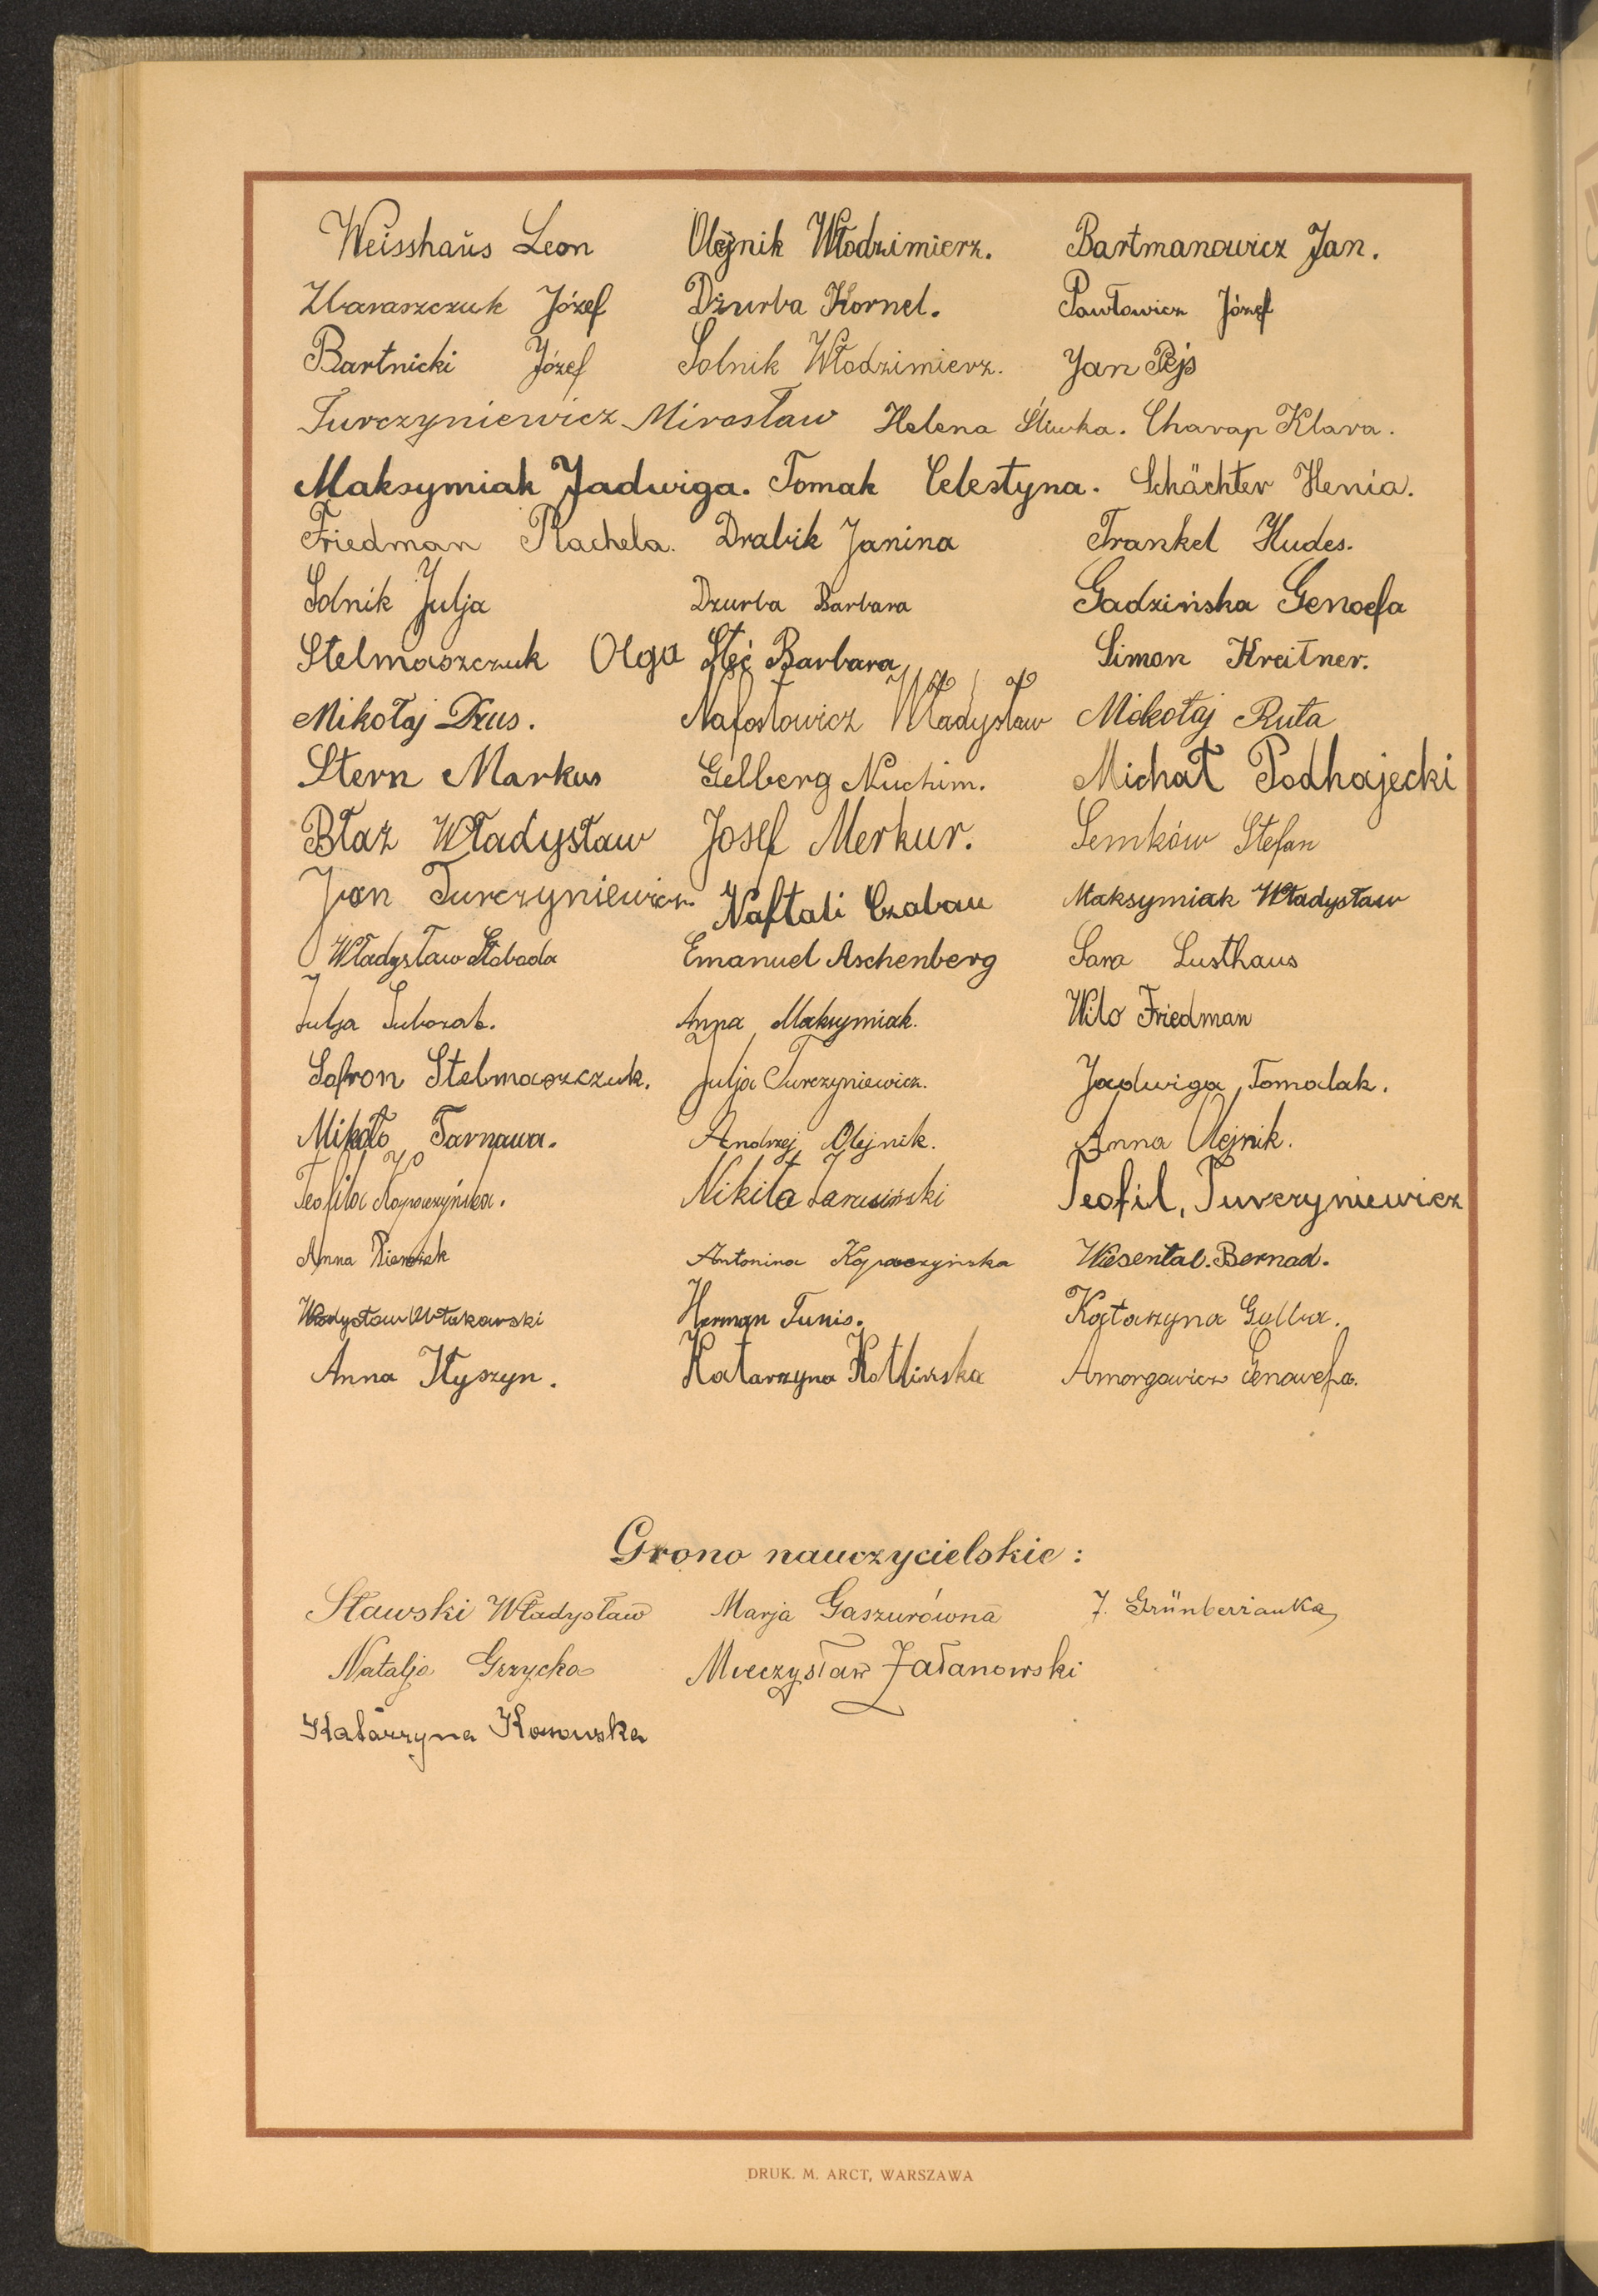 Weisshaüs Leon Olejnik Włodzimierz. Bartmanowicz Jan.
Zbaraszczuk Józef Dżurba Kornel. Pawłowicz Józef
Bartnicki Józef Solnik Włodzimierz. Jan Pejs
Turczyniewicz Mirosław Helena Śliwka. Charap Klara.
Maksymiak Jadwiga. Tomak Celestyna. Schächter Henia.
Friedman Rachela. Drabik Janina Frankel Hudes.
Solnik Julja Dzurba Barbara Gadzińska Genoefa
Stelmaszczuk Olga Steć Barbara Simon Kreitner.
Mikołaj Dzus. Nafostowicz Władysław Mikołaj Ruta
Stern Markus Gelberg Nuchim. Michał Podhajecki
Błaż Władysław Josef Merkur. Semków Stefan
Jan Turczyniewicz Naftali Czaban Maksymiak Władysław
Władysław Słoboda Emanuel Aschenberg Sara Lusthaus
Julja Anna Maksymiak. Wilo Friedman
Safron Stelmaszczuk. Julja Turczyniewicz. Jadwiga Tomalak.
Mikoło Tarnawa. Andrzej Olejnik. Anna Olejnik.
Teofila Kopaczyńska. Nikita Teofil, Turczyniewicz
Anna Antonina Kopaczyńska Wiesental. Bernad.
Władysław Herman Tunis. Katarzyna Gulba.
Anna Kyszyn. Katarzyna Kotlińska Amorgowicz Genowefa.
Grono nauczycielskie:
Sławski Władysław Marja Gaszurówna J. Grünberżanka
Natalja Grzycka Mieczysław Załanowski
Katarzyna Kossowska
DRUK. M. ARCT, WARSZAWA